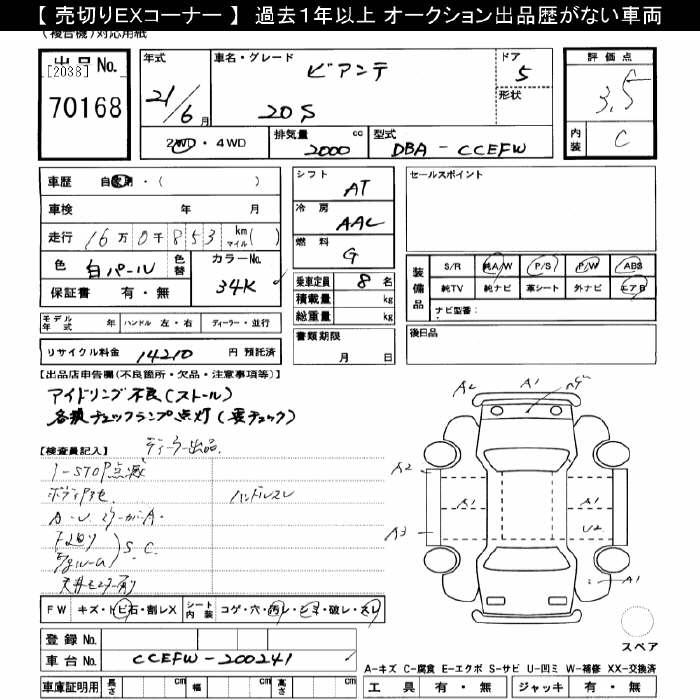 【 売切りEXコーナー 】 過去１年以上 オークション出品歴がない車両
(複合機)対応用紙
出品 No.
[2038]
70168
年式
21/6月
車名・グレード
ビアンテ
20S
ドア
5
形状
評価点
3.5
内装
C
2WD ・ 4WD
排気量
2000
cc
型式
DBA - CCEFW
車歴 自家用 ・ ( )
車検 年 月
走行 16万0千853 km マイル ( )
色 白パール
色替
カラーNo.
34K
保証書 有 ・ 無
シフト
AT
冷房
AAC
燃料
G
乗車定員 8 名
積載量 kg
総重量 kg
書類期限
月 日
セールスポイント
装備品
S/R 純A/W P/S P/W ABS
純TV 純ナビ 革シート 外ナビ エアB
ナビ型番：
後日品
モデル年式 年 ハンドル 左 ・ 右 ディーラー ・ 並行
リサイクル料金 14210 円 預託済
【出品店申告欄(不良箇所・欠品・注意事項等)】
アイドリング不良(ストール)
各種チェックランプ点灯(要チェック)
【検査員記入】 ディーラー出品
i-STOP点滅
ボディアセ
ハンドルスレ
A・U
F廻り
S.C.
天井モニター有り
FW キズ・トビ石・割レX
シート内装 コゲ・穴・汚レ・シミ・破レ・スレ
登録 No.
車台 No. CCEFW-200241
車庫証明用 長さ cm 幅 cm 高さ cm
A2
A1
A2
A1
A1
A3
U2
A1
スペア
A-キズ C-腐食 E-エクボ S-サビ U-凹ミ W-補修 XX-交換済
工具 有 ・ 無 ジャッキ 有 ・ 無